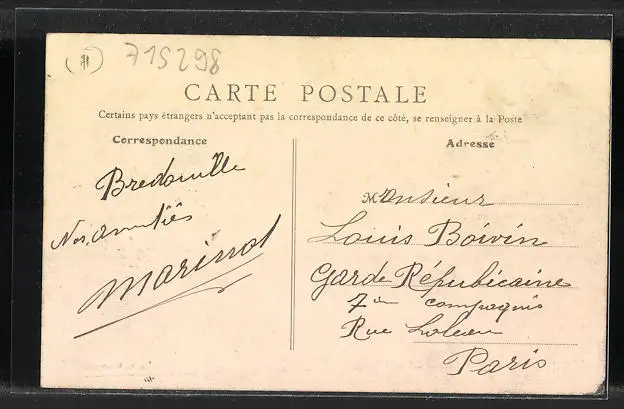 715298
CARTE POSTALE
Certains pays étrangers n'acceptant pas la correspondance de ce côté, se renseigner à la Poste
Correspondance
Adresse
Bredouille
Nos amitiés
Marinot
Monsieur
Louis Boivin
Garde Républicaine
7e compagnie
Rue
Paris